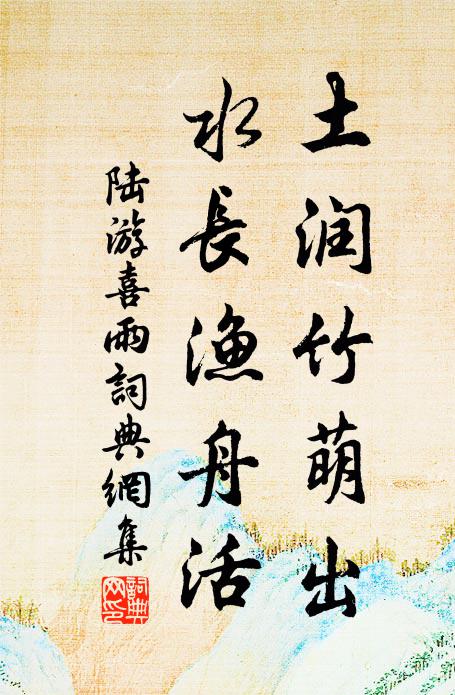 土润竹萌出
水長渔舟活
陆游喜雨詞典網集
詞典网印